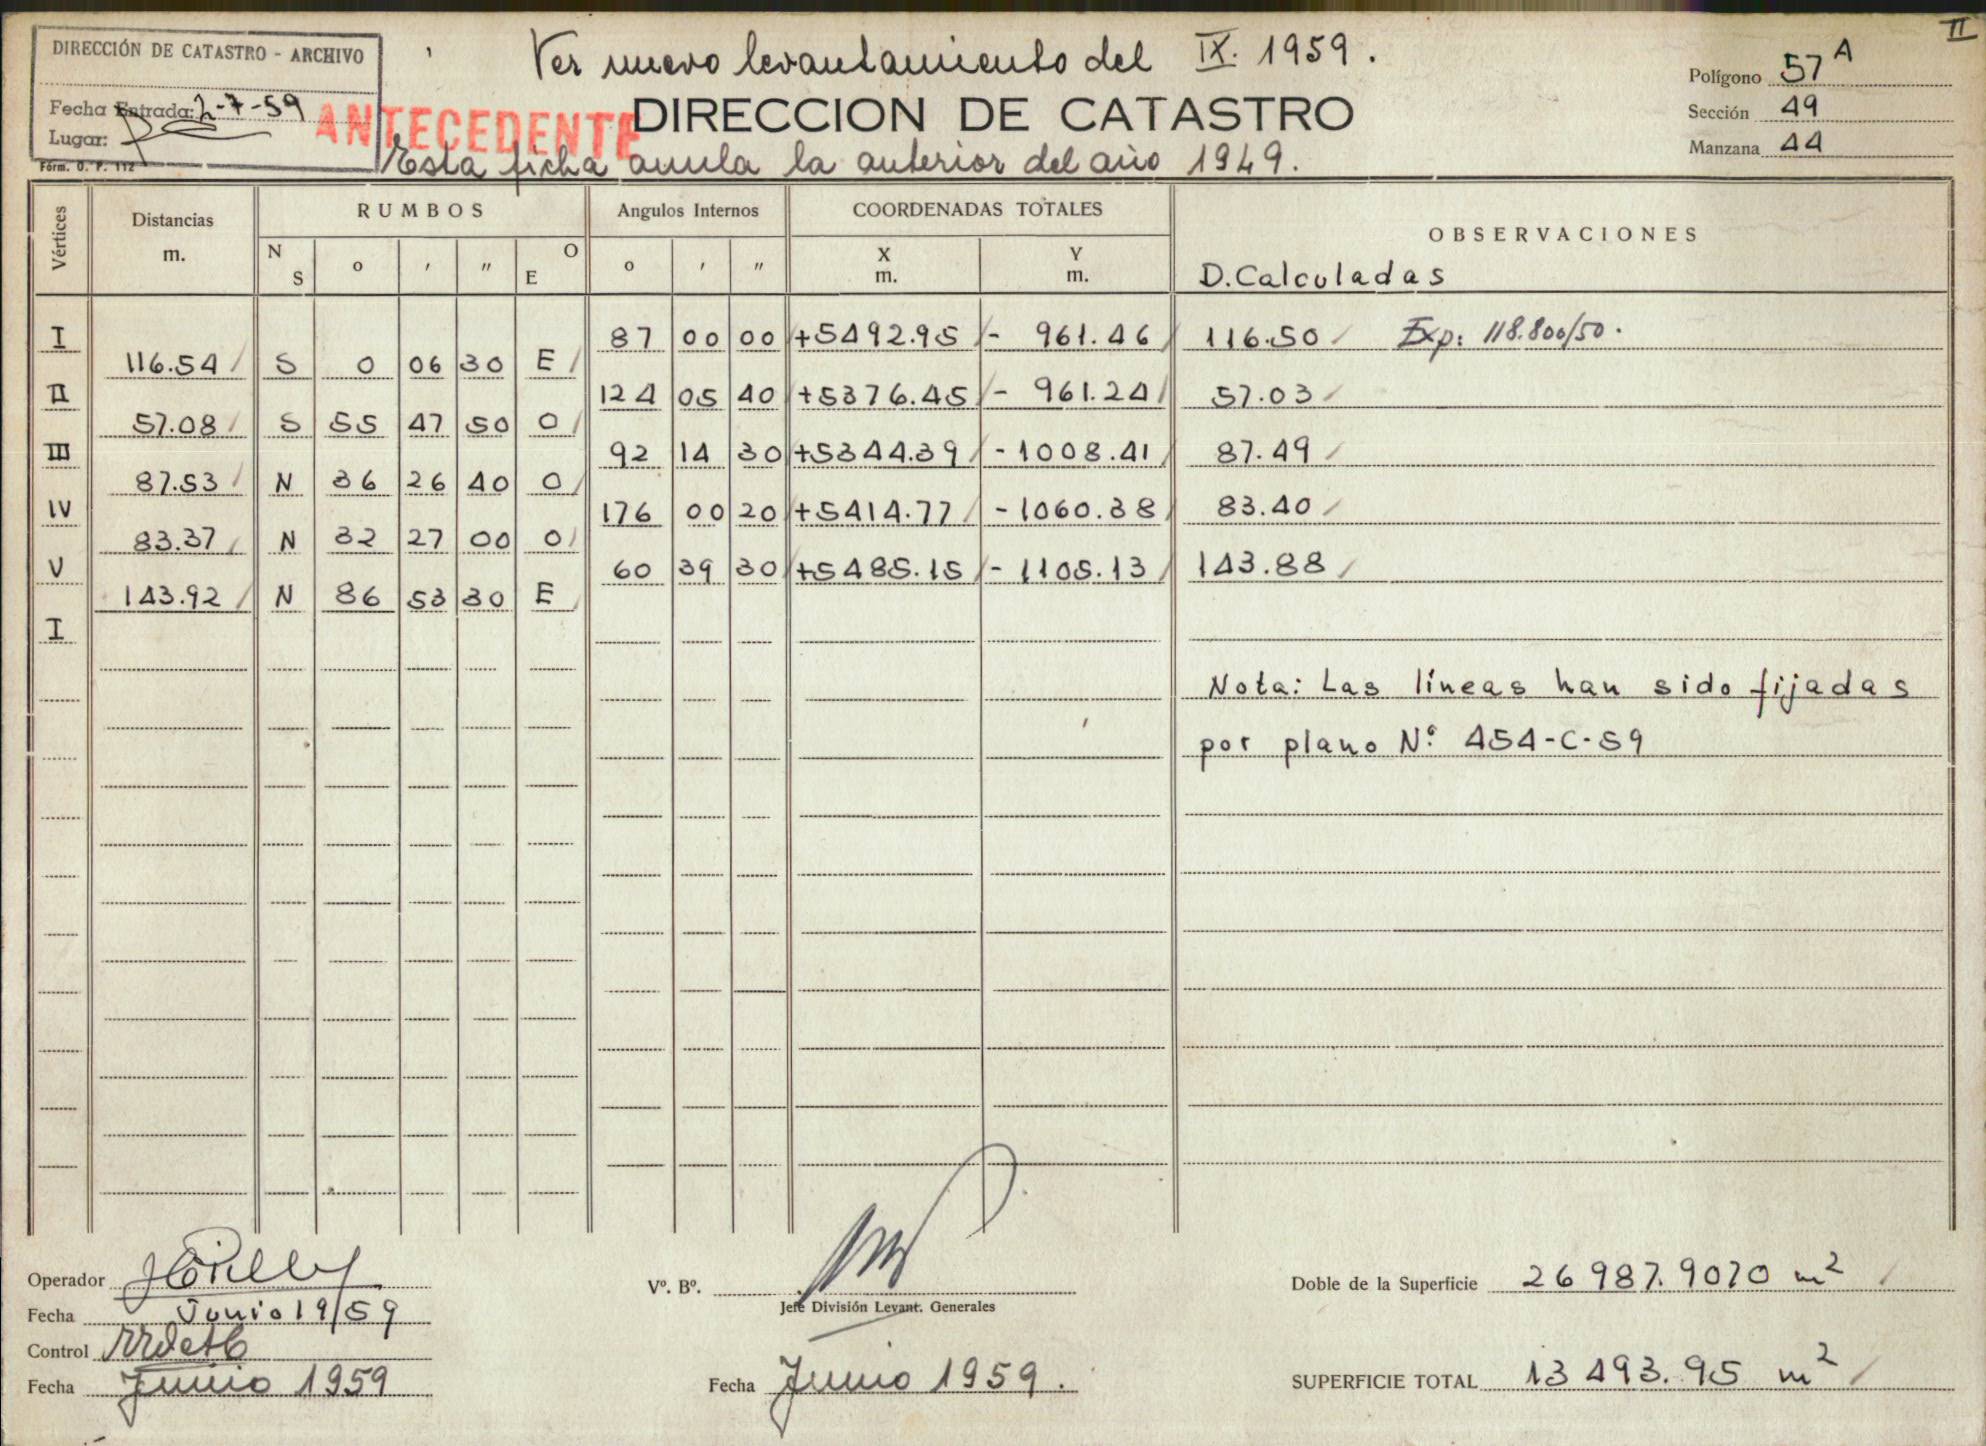 II
DIRECCIÓN DE CATASTRO - ARCHIVO
Fecha Entrada: 2-7-59
Lugar:
Fórm. O. P. 112
Ver nuevo levantamiento del IX. 1959.
ANTECEDENTE
DIRECCION DE CATASTRO
Esta ficha anula la anterior del año 1949.
Polígono 57 A
Sección 49
Manzana 44
Vértices Distancias m. RUMBOS Angulos Internos COORDENADAS TOTALES OBSERVACIONES
N S o ′ ″ E O o ′ ″ X m. Y m. D. Calculadas
I 87 00 00 +5492.95 - 961.46 116.50 Exp: 118.800/50.
116.54 S 0 06 30 E
II 124 05 40 +5376.45 - 961.24 57.03
57.08 S 55 47 50 O
III 92 14 30 +5344.39 - 1008.41 87.49
87.53 N 36 26 40 O
IV 176 00 20 +5414.77 - 1060.38 83.40
83.37 N 32 27 00 O
V 60 39 30 +5485.15 - 1105.13 143.88
143.92 N 86 53 30 E
I
Nota: Las líneas han sido fijadas
por plano Nº 454-C-59
Operador
Fecha Junio 19/59
Control
Fecha Junio 1959
Vº. Bº.
Jefe División Levant. Generales
Fecha Junio 1959.
Doble de la Superficie 26987.9070 m²
SUPERFICIE TOTAL 13493.95 m²